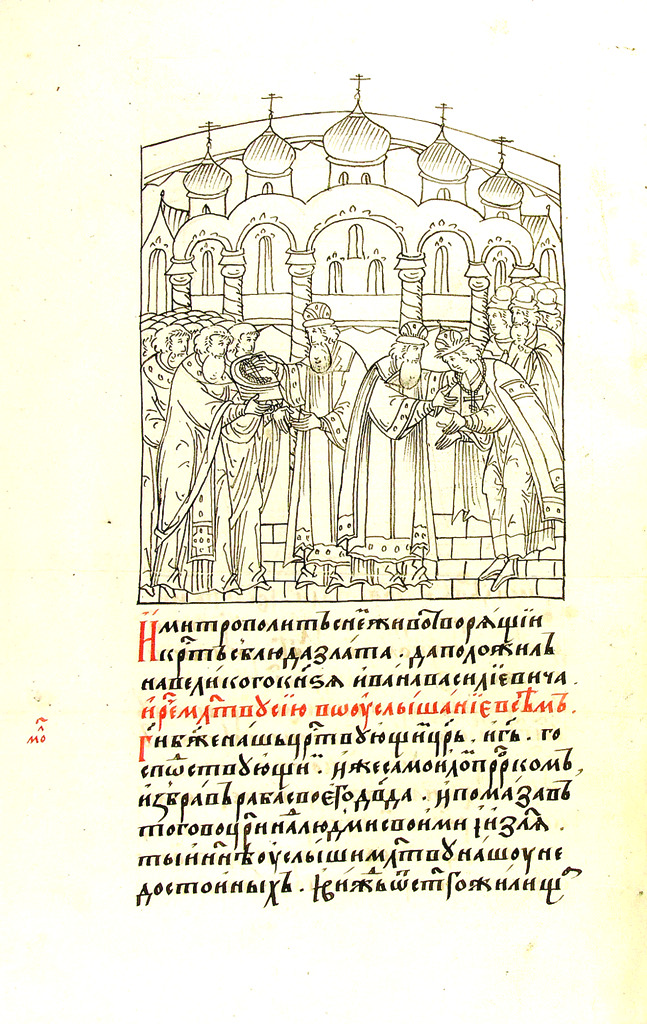 И митрополитъ снѣ животворящїи
кр҃тъ съ блюда злата . да положилъ
на великого кн҃ѕя ивана васильевича .
и рече мл҃тву сїю въ оуслышанїе всѣмъ .
мл҃о
Г҃и бж҃е нашь цр҃твующи цр҃ь . и г҃ь . го
сподьствующи . иже самоиломъ пр҃ркомъ
избравъ раба своего дв҃да . и помазавъ
того во цр҃и на люд ми своими и҃изл҃я .
ты и нн҃ѣ оуслыши мл҃тву нашоу не
достоиныхъ . и вижь ѿ ст҃го жилищ